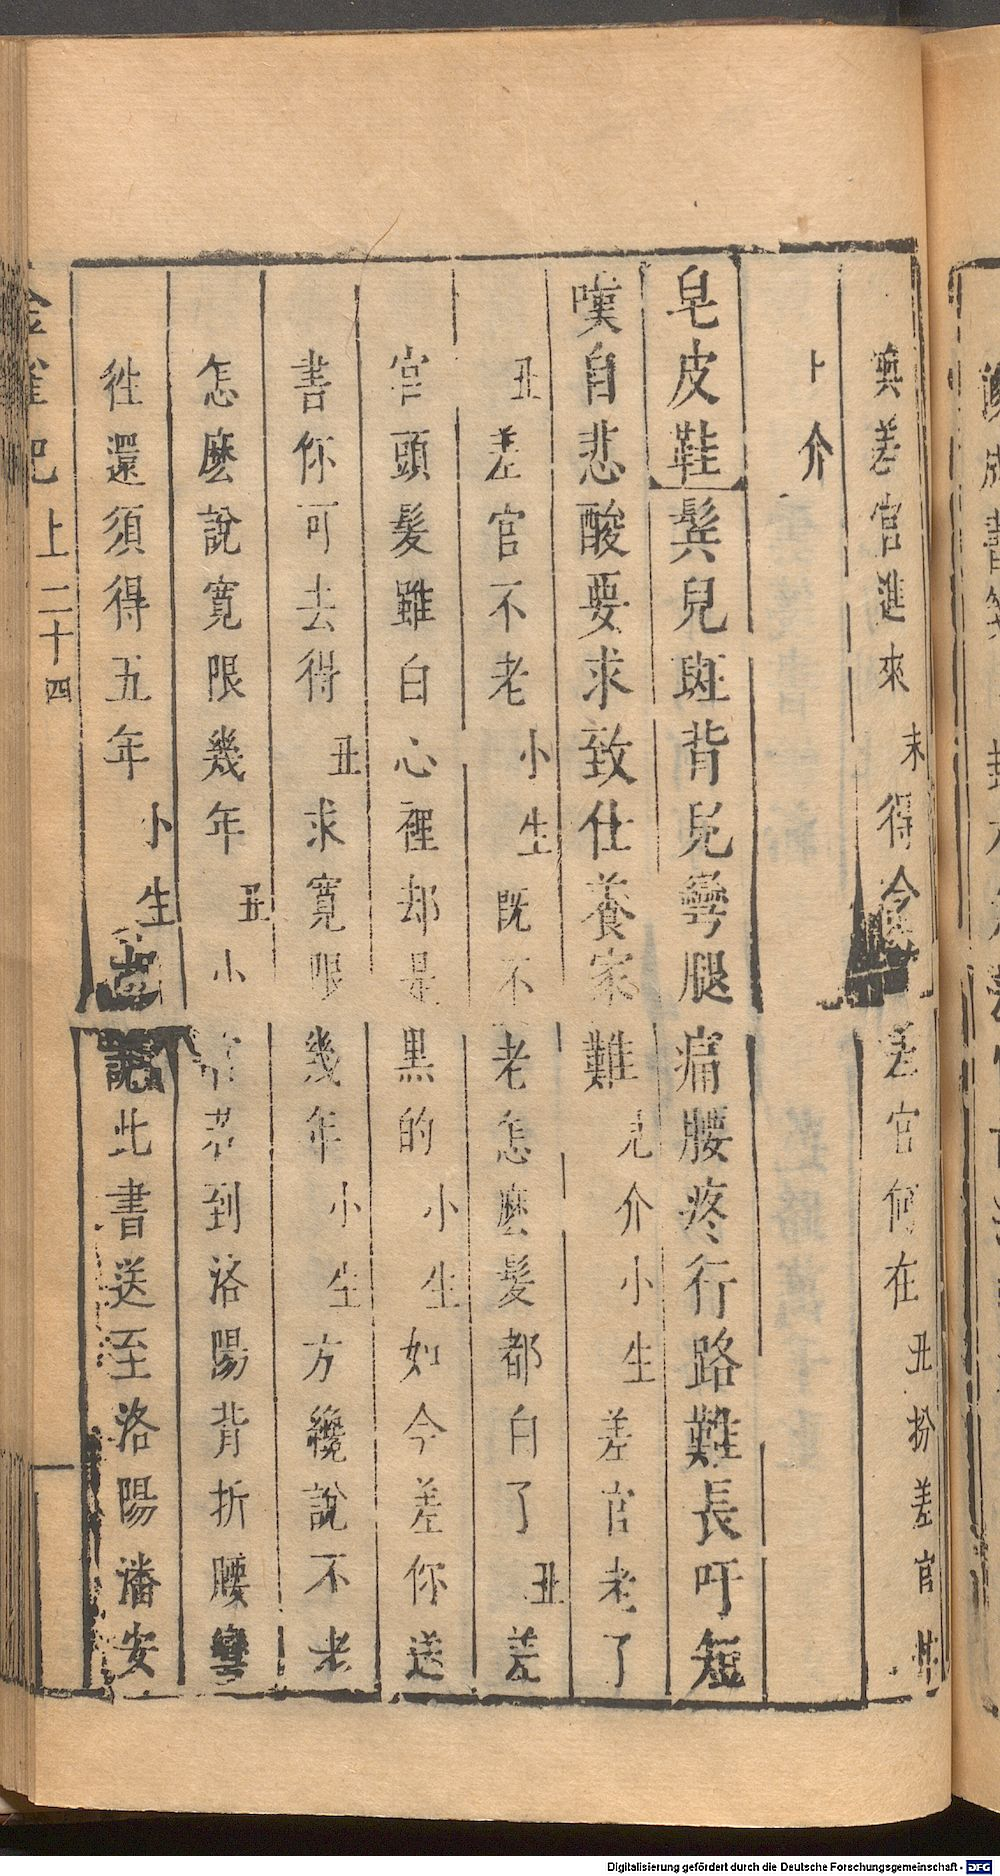 差官進來末得令差官何在丑扮差官
上介
皂皮鞋鬂兒斑背兒彎腿痛腰疼行路難長吁短
嘆自悲酸要求致仕養家難見介小生差官老了
丑差官不老小生既不老怎麼髮都白了丑差
官頭髮雖白心裡却是黒的小生如今差你送
書你可去得丑求寬限幾年小生方纔說不老
怎麼說寬限幾年丑小官若到洛陽背折腰彎
徃還須得五年小生說此書送至洛陽潘安
金雀記
上二十四
Digitalisierung gefördert durch die Deutsche Forschungsgemeinschaft - DFG